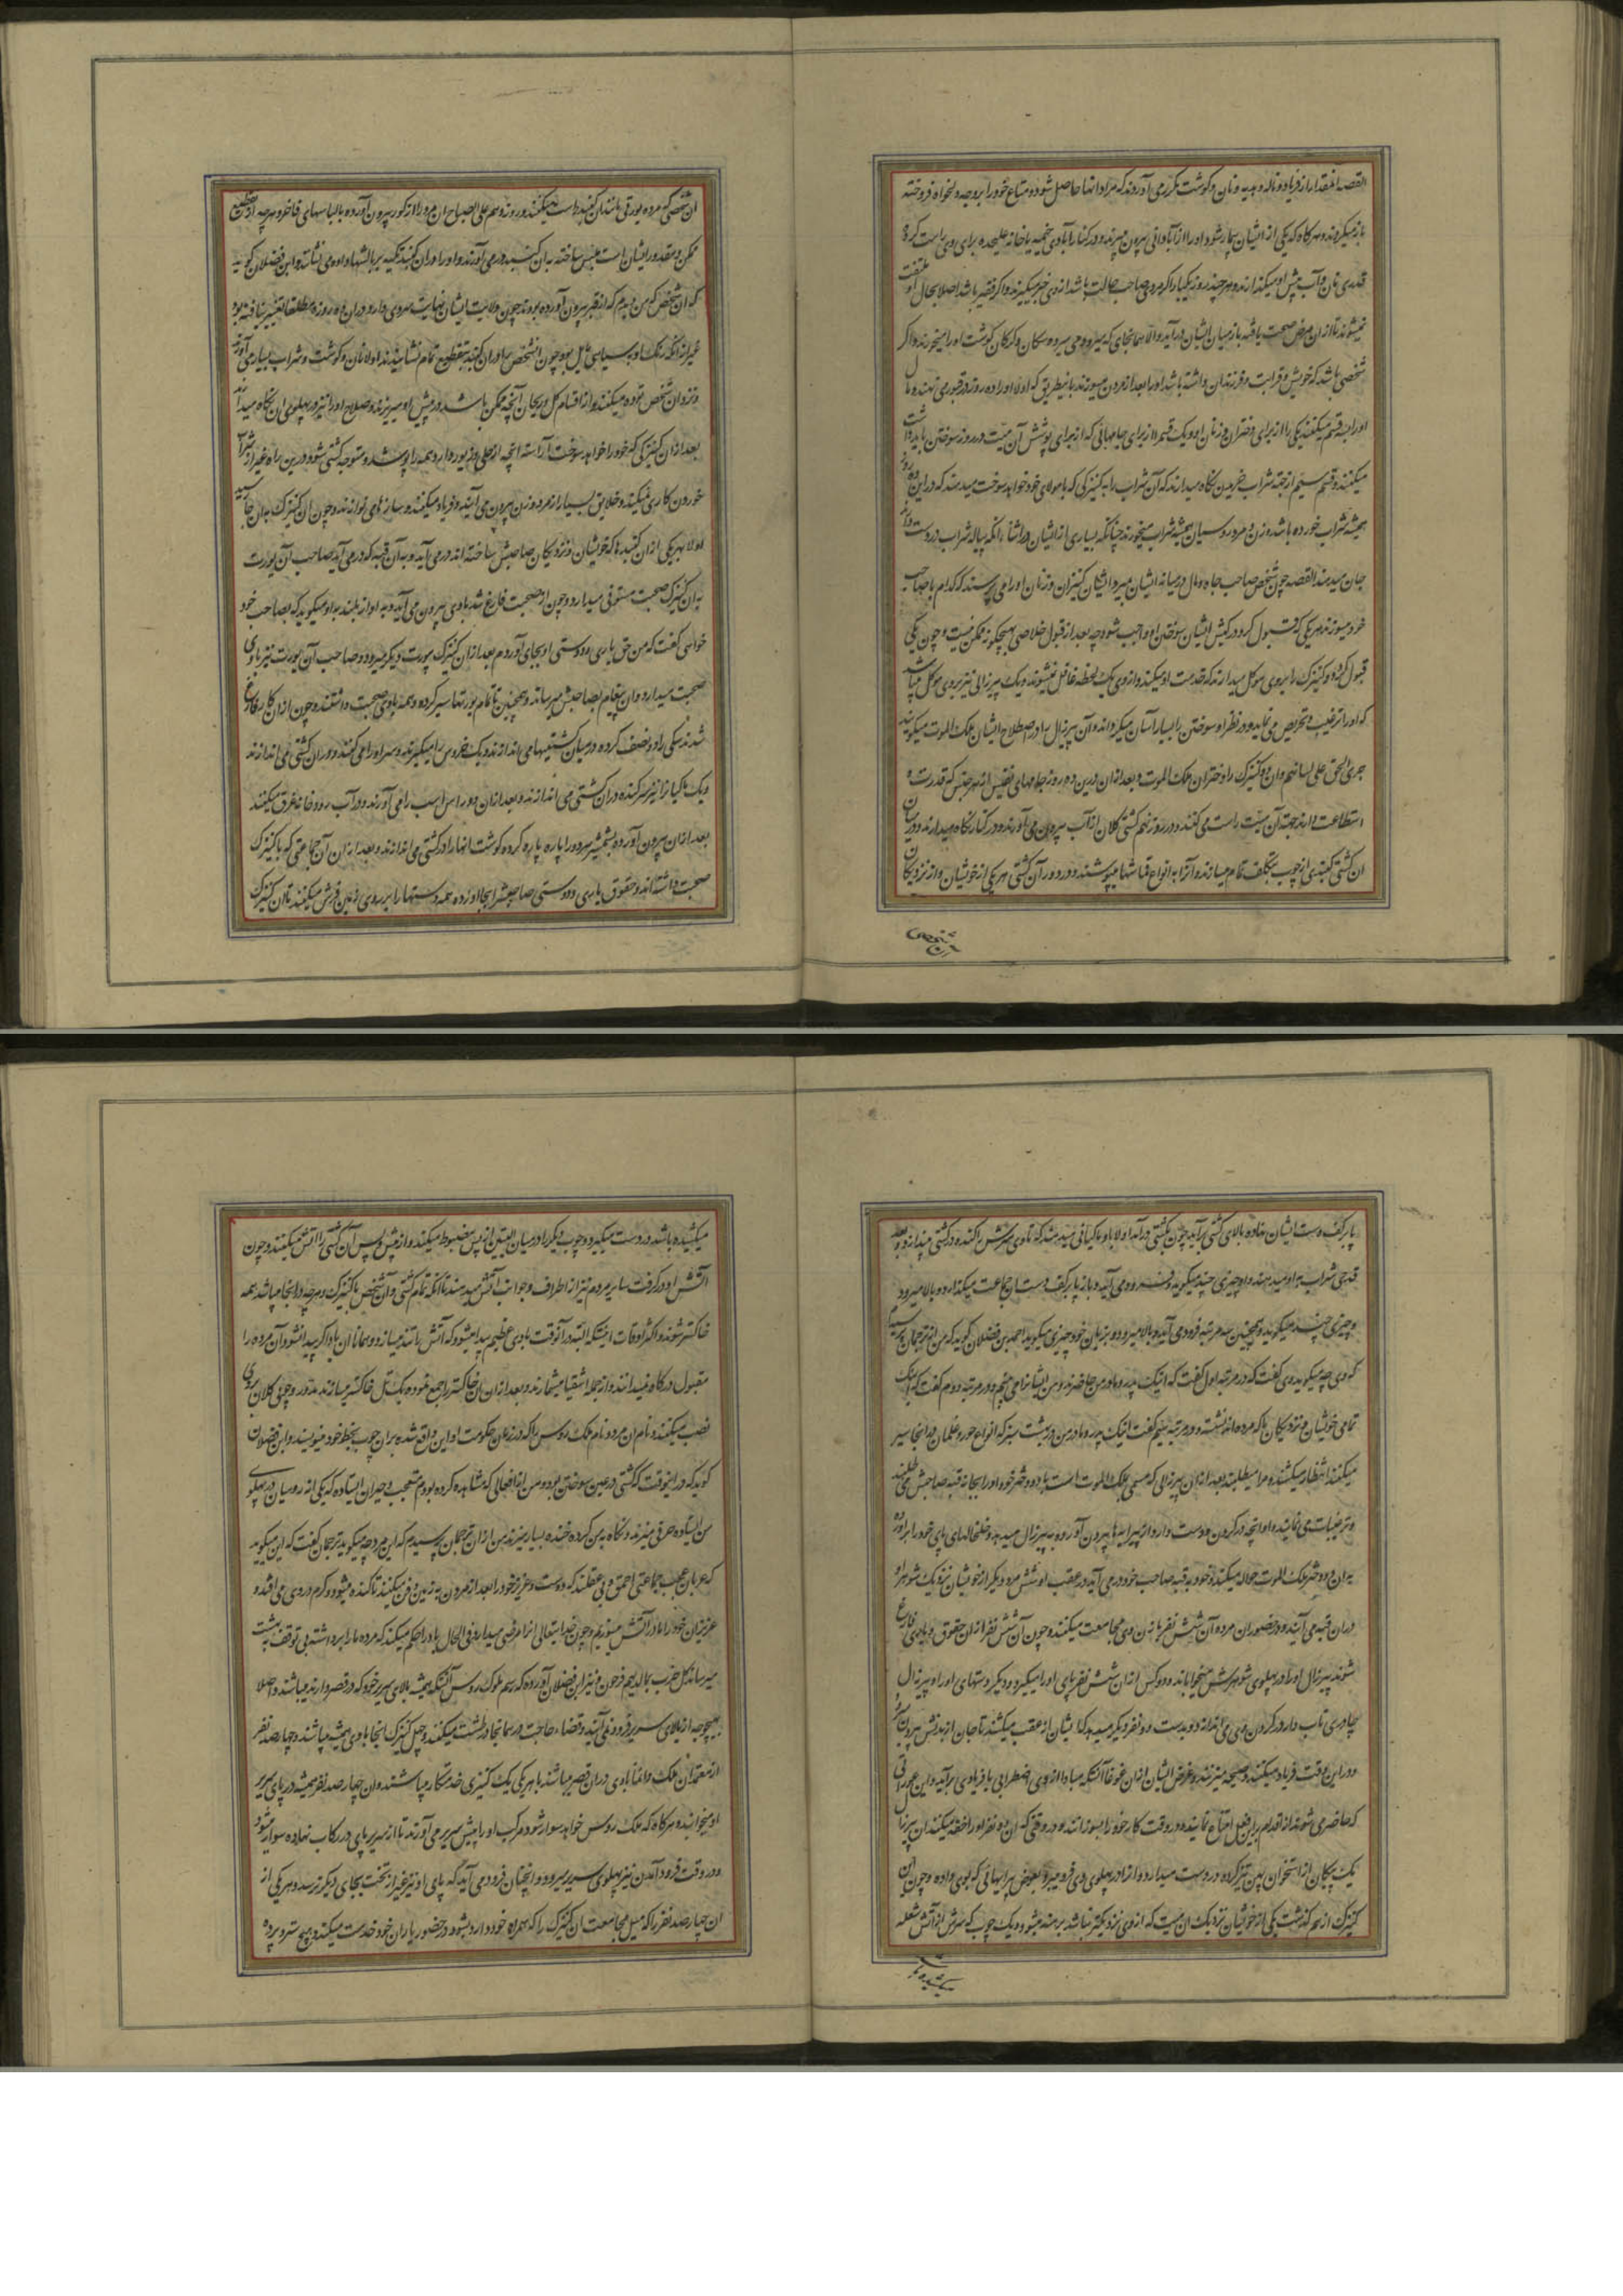 القصه انمقدار از فریاد و ناله و هدیه و نان و گوشت مکرر می آورند که مراد انها حاصل شود و متاع خود را بر وجه دلخواه فروخته
باز میگردند و هرگاه که یکی از ایشان بیمار شود او را از آبادانی بیرون میبرند و در کنار آبادی خیمه یا خانه علیحده برای وی راست کرده
قدری نان و آب پیش او میگذارند و هر چند روز یکبار اگر مردی صاحب حالت باشد از وی خبر میگیرند و اگر فقیر باشد اصلا بحال او ملتفت
نمیشوند تا از ان مرض صحت یافته باز میان ایشان در آید و الا همانجای که میرود می میرد و سکان و کرکان گوشت او را میخورند و اگر
شخصی باشد که خویش و قرابت و فرزندان داشته باشد او را بعد از مردن میسوزند باینطریق که اولا او را ده روز در قبر می نهند و مال
او را سه قسم میکنند یکی را از برای دختران و زنان او و یک قسم از برای جامهائی که از برای پوشش آن میت در روز سوختن باید راست
میکنند و قسم سیم از جهة شراب خریدن نگاه میدارند که آن شراب را به کنیزکی که با مولای خود خواهد سوخت میدهند که در این ده روز
همیشه شراب خورده باشد و زن و مرد روسیان همیشه شراب میخورند چنانکه بسیاری از ایشان در اثنا آنکه پیاله شراب در دست دارند
جان میدهند القصه چون شخص صاحب جاه و مال در میانه ایشان میرد ایشان کنیزان و زنان او را می پرسند که کدام با صاحب
خود میسوزند هر یکی که قبول کرد در کیش ایشان سوختن او واجب شود چه بعد از قبول خلاصی بهیچگونه ممکن نیست و چون یکی
قبول کرد دو کنیزک را بر وی موکل میدارند که خدمت او میکنند و از وی یک لحظه غافل نمیشوند و یک پیرزالی نیز بر وی موکل میباشد
که او را ترغیب و تحریص می نماید و در نظر او سوختن را بسیار آسان میگرداند و آن پیرزال را در اصطلاح ایشان ملک الموت میگویند
جری الحق علی لسانهم و ان دو کنیزک را دختران ملک الموت و بعد از ان درین ده روز جامهای نفیس از هر جنس که قدرت و
استطاعت دارند جهة آن میت راست می کنند و در روز نهم کشتی کلان از آب بیرون می آورند و در کنار نگاه میدارند و در میان
ان کشتی گنبدی از چوب بتکلف تمام میسازند و آنرا به انواع قماشها میپوشند و در دور آن کشتی هر یکی از خویشان و از نزدیکان
ان شخص
ان شخص که مرده یورتی مانند ان گنبد راست میکنند و روز دهم علی الصباح ان مرد را از گور بیرون آورده با لباسهای فاخر و هر چه از تقطیع
ممکن و مقدور ایشان است ملبس ساخته به ان گنبد در می آورند و او را در ان گنبد تکیه بر بالشها داده می نشانند و ابن فضلان گوید
که ان شخص که من دیدم که از قبر بیرون آورده بودند چون ولایت ایشان نهایت سردی دارد در ان ده روز مطلقا تغییر نیافته بود
غیر از آنکه رنگ او به سیاهی مایل بود و چون انشخص را در ان گنبد بتقطیع تمام نشانیدند اولا نان و گوشت و شراب بسیار می آورند
و نزد ان شخص توده میکنند و از اقسام گل و ریحان آنچه ممکن باشد در پیش او میریزند و صلاح او را نیز در پهلوی ان نگاه میدارند
بعد از ان کنیزکی که خود را خواهد سوخت آراسته آنچه از حلی و زیور دارد همه را پوشد و متوجه کشتی شود و درین راه غیر از شراب
خوردن کاری نمیکند و خلایق بسیار از مرد و زن بیرون می آیند و فریاد میکنند و سازهای نوازند و چون ان کنیزک به ان جا رسید
اولا بهر یکی از ان گنبدها که خویشان و نزدیکان صاحبش ساخته اند در می آید و به آن قبه که در می آید صاحب آن یورت
به ان کنیزک صحبت مستوفی میدارد و چون از صحبت فارغ شد با وی بیرون می آید و به آواز بلند به او میگوید که بصاحب خود
خواهی گفت که من حق یاری و دوستی او بجای آوردم بعد از ان کنیزک بیورت دیگر میرود و صاحب آن یورت نیز با وی
صحبت میدارد و ان پیغام بصاحبش میرساند و همچنین تا تمام یورتها سیر کرده و همه با وی صحبت داشتند و چون از ان کار فارغ
شدند سگی را دو نصف کرده در میان کشتیها می اندازند و یک خروس را میگیرند و سر او را می کنند و در ان کشتی می اندازند
و یک ماکیان را نیز سر کنده در ان کشتی می اندازند و بعد از ان دو راس اسب را می آورند و در آب رودخانه غرق میکنند
بعد از ان بیرون آورده بشمشیر هر دو را پاره پاره کرده گوشت انها را در کشتی می اندازند و بعد از ان آن جماعتی که با کنیزک
صحبت داشته اند و حقوق یاری و دوستی صاحبش را بجا آورده همه دستها را بر روی زمین فرش میکنند تا ان کنیزک
پا بر کف دست ایشان نهاده بالای کشتی بر آید چون بکشتی در آمد اولا باو ماکیانی میدهند که تا وی سرش را کنده در کشتی میندازد و بعد
قدحی شراب به او میدهند و او چیزی چند میگوید و فرود می آید و باز پا بر کف دست ان جماعت میگذارد و بالا میرود
و چیزی چند میگوید و همچنین سه مرتبه فرود می آید و بالا میرود و بزبان خود چیزی میگوید احمد بن فضلان گوید که من از ترجمان پرسیدم
که وی چه میگوید وی گفت که در مرتبه اول گفت که اینک پدر و مادر من حاضرند و من ایشانرا می بینم و در مرتبه دوم گفت که اینک
تمامی خویشان و نزدیکان ما که مرده اند نشسته و در مرتبه سیم گفت اینک پدر و مادر من در بهشت سبز که انواع حور و غلمان در انجا سیر
میکنند انتظار میکشند و مرا میطلبند بعد از ان پیرزالی که مسمی بملک الموت است با دو دختر خود او را بجانب قبه صاحبش می طلبند
و ترغیبات می نمایند و او آنچه در گردن و دست دارد از پیرایه ها بیرون آورده به پیرزال میدهد و خلخالهای پای خود را بر آورده
به ان دو دختر ملک الموت حواله میکند و خود به قبه صاحب خود در می آید و در عقب او شش مرد دیگر از خویشان نزدیک شوهر او
در ان قبه می آیند و در حضور ان مرده آن شش نفر با زن وی مجامعت میکنند و چون آن شش نفر از ان حقوق و یاری فارغ
شوند پیرزال او را در پهلوی شوهرش میخواباند و دو کس از ان شش نفر پای او را میگیرد و دیگر دستهای او را و پیرزال
چادری تاب داده در گردن وی می اندازد و بدست دو نفر دیگر میدهد که ایشان از عقب میکشند تا جان از بدنش بیرون رود
و در این وقت فریاد میکنند و صیحه میزنند و غرض ایشان از ان غوغا آنستکه مبادا از وی اضطرابی یا فریادی بر آید و این عورتانی
که حاضر می شوند از اقدام بر این فعل امتناع نمایند و در وقت کار خود را بسوزانند و در وقتی که ان دو نفر او را خفه میکنند ان پیرزال
یک پیکان از استخوان پهن تیز کرده در دست میدارد و از او در پهلوی وی فرو میبرد بعوض پیرایهائی که بوی داده و چون این
کنیزک از سر گذشت یکی از خویشان نزدیک ان میت که از وی نزدیکتر نباشد برهنه میشود و یک چوب که سرش از آتش شعله
میکشیده باشد
میکشیده باشد در دست میگیرد و چوب دیگر را در میان الیتین از پس مضبوط میکند و از پیش و پس آن کشتی را آتش میکنند و چون
آتش او در گرفت سایر مردم نیز از اطراف و جوانب آتش میدهند تا آنکه تمام کشتی و آن شخص با کنیزک و هر چه در انجا میباشد همه
خاکستر شوند و اکثر اوقات اینستکه البته در آنوقت بادی عظیم پیدا میشود که آتش را تند میسازد و همانا ان باد اگر پیدا نشود آن مرده را
مقبول درگاه نمیدانند و از جمله اشقیا میشمارند و بعد از ان ان خاکستر را جمع نموده یک تل خاکستر میسازند مدور و چوبی کلان بر وی
نصب میکنند و نام ان مرد و نام ملک روس را که در زمان حکومت او این واقع شده بر ان چوب بخط خود مینویسند و ابن فضلان
گوید که در اینوقت که کشتی در عین سوختن بود و من از افعالی که مشاهده کرده بودم متعجب و حیران ایستاده که یکی از روسیان در پهلوی
من ایستاده حرفی میزند و نگاه به من کرده خنده بسیار میزند من از ان ترجمان پرسیدم که این مرد چه میگوید ترجمان گفت که این میگوید
که عربان عجب جماعتی احمق و بی عقلند که دوست و عزیز خود را بعد از مردن به زمین دفن میکنند تا گنده میشود و کرم در وی می افتد و
عزیزان خود را ما در آتش میسوزیم و چون خدایتعالی از ما راضی میدارد فی الحال باد را حکم میکند که مرده ما را برداشته بی توقف به بهشت
میرساند کل حزب بما لدیهم فرحون و نیز ابن فضلان آورده که رسم ملوک روس آنستکه همیشه بالای سریر خود که در قصر دارند میباشند و اصلا
بهیچوجه از بالای سریر فرود نمی آیند و قضاء حاجت در همانجا در طشت میکنند و چهل کنیزک انجا با وی همیشه میباشند و چهار صد نفر
از معتمدان ملک دائما با وی در ان قصر میباشند با هر یکی یک کنیزی خدمتکار میباشند و ان چهار صد نفر همیشه در پای سریر
او میخوابند و هرگاه که ملک روس خواهد سوار شود مرکب او را پیش سریر می آورند تا از سریر پای در رکاب نهاده سوار میشود
و در وقت فرود آمدن نیز پهلوی سریر میرود و انچنان فرود می آید که پای او نیز بغیر از تخت بجای دیگر نرسد و هر یکی از
ان چهار صد نفر را که میل مجامعت ان کنیزک را که همراه خود دارد بشود در حضور یاران خود خدمت میکند و هیچ ستر و پرده